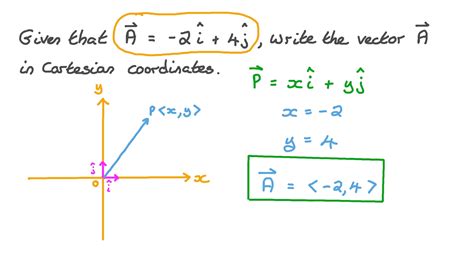 Given that A⃗ = -2î + 4ĵ, write the vector A⃗
in Cartesian coordinates.
P⃗ = xî + yĵ
y
P<x,y>
x = -2
y = 4
ĵ
î
O
x
A⃗ = <-2,4>